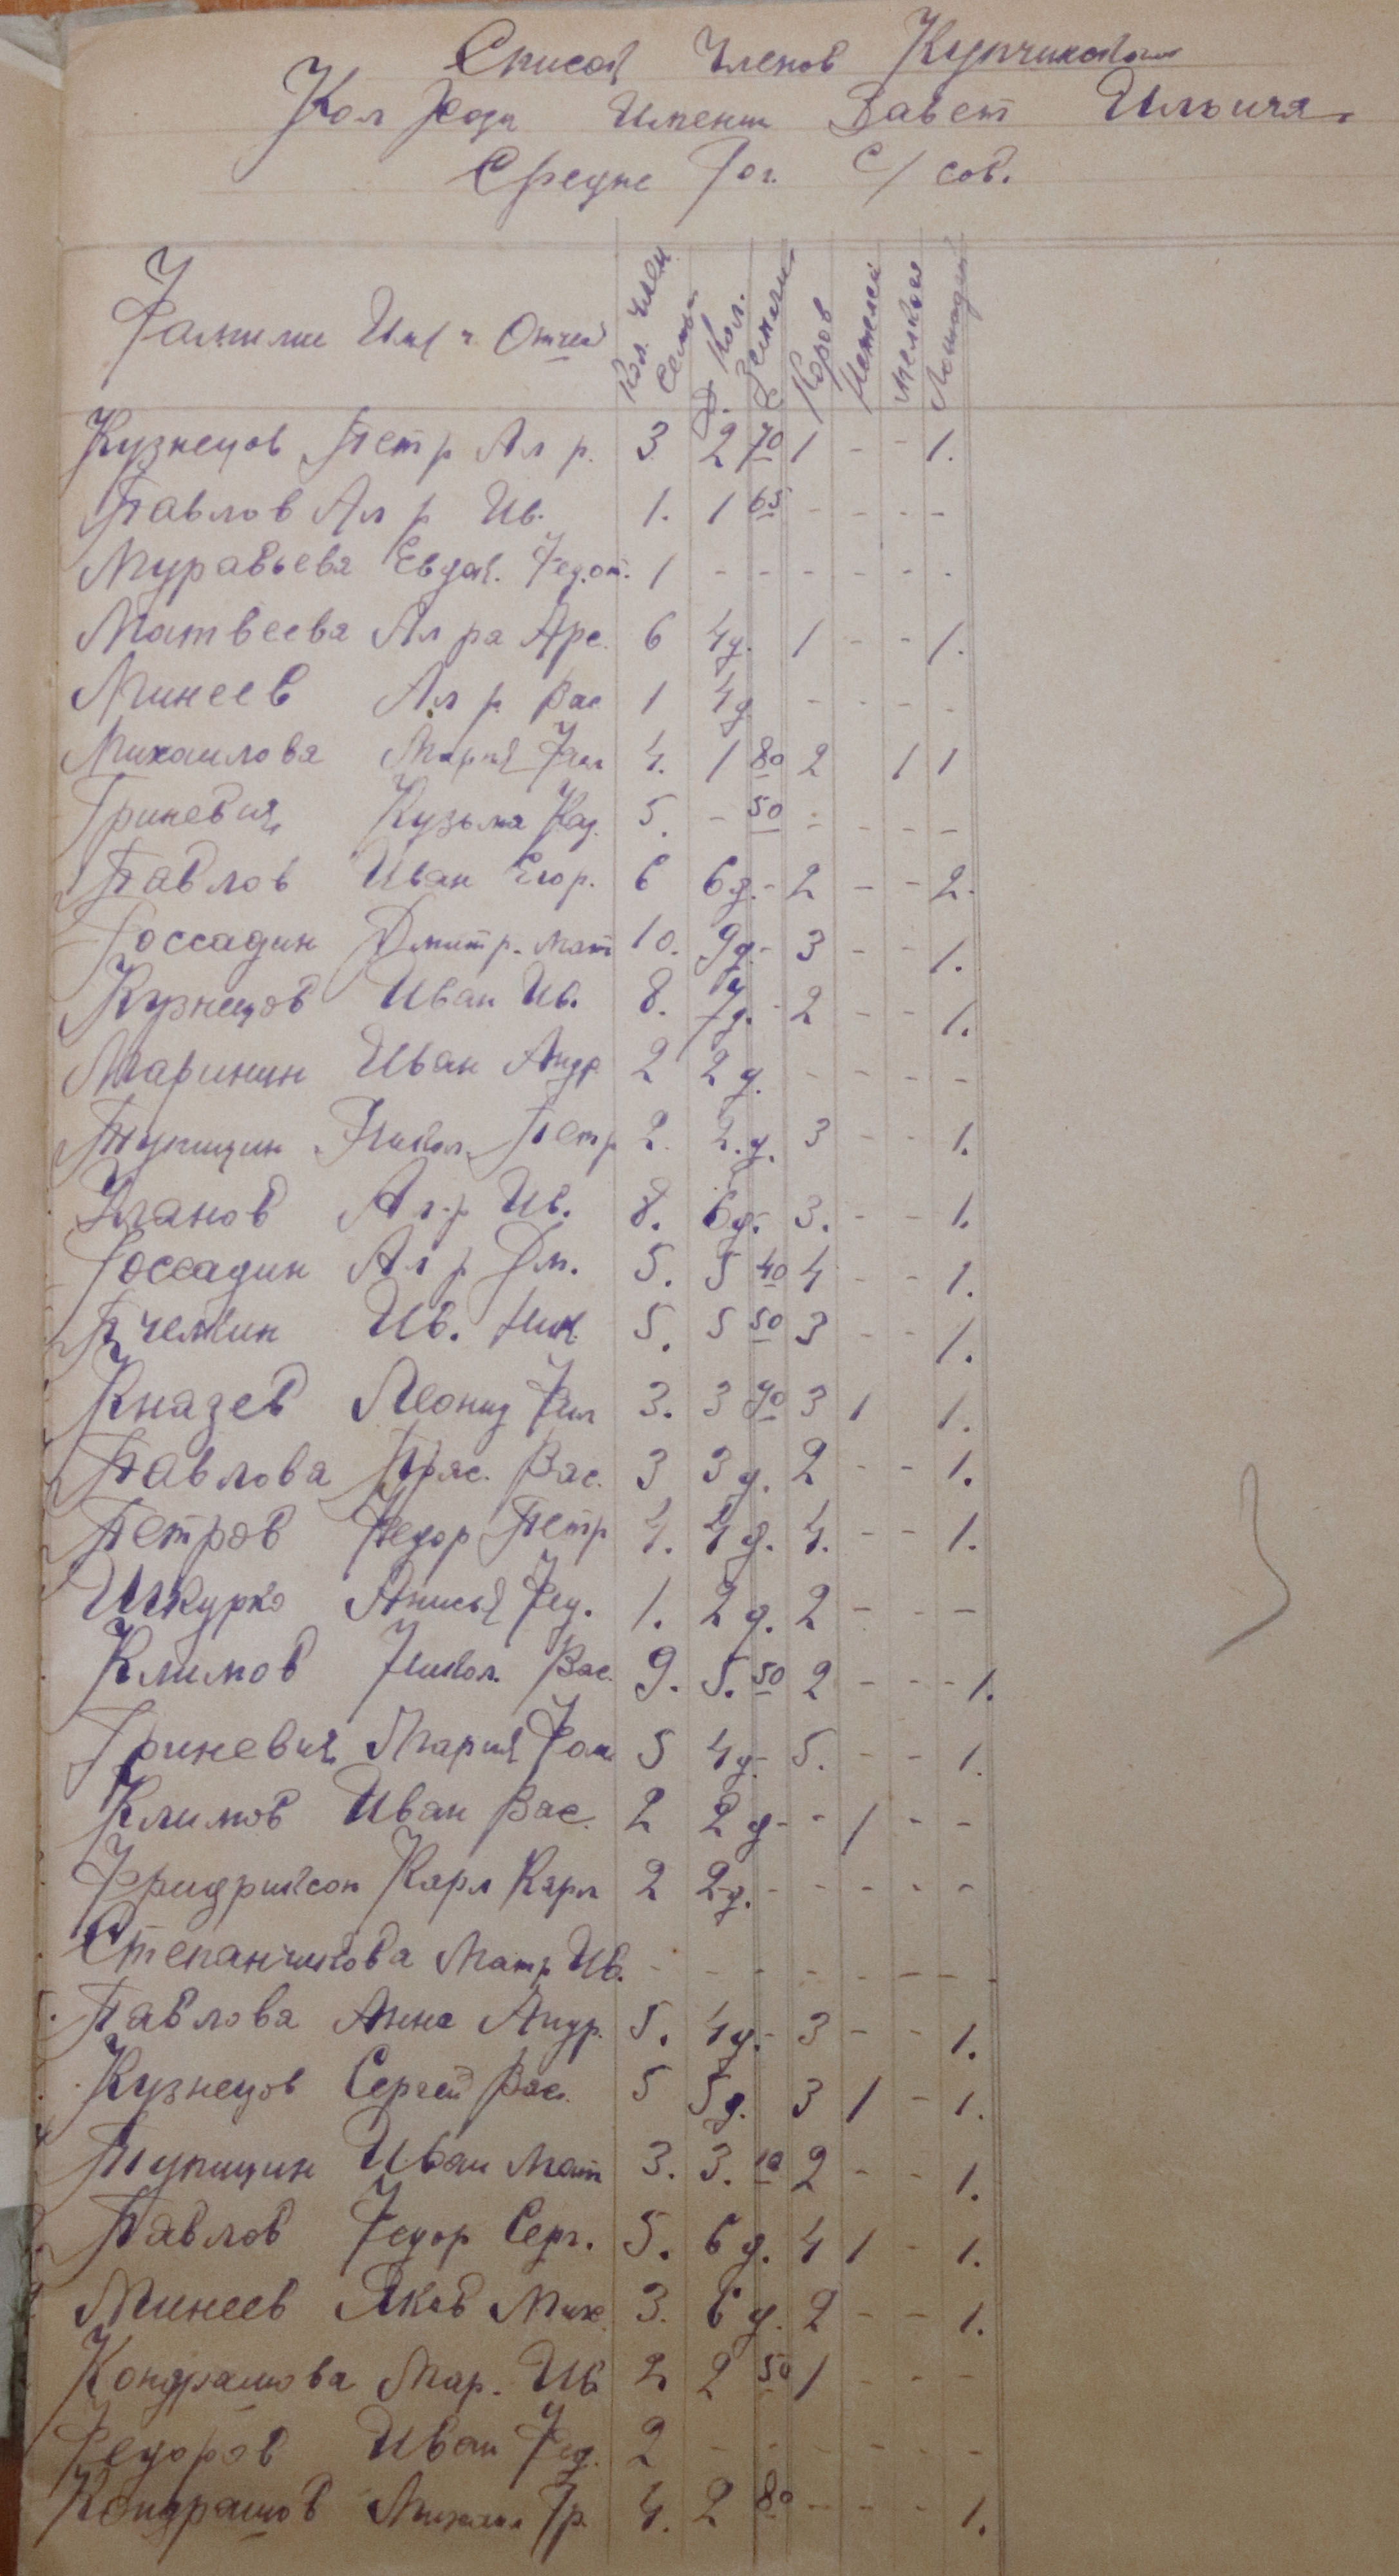 Список Членов Купчиновского
Колхоза Имени Завет Ильича.
Средне Рог. С/сов.
Фамилии Имя и Отчев Кол. член. семьи Д. Кол. Земли С. Коров Нетелей мелкая Лошадей
Кузнецов Петр Ал р. 3 2 70 1 - - 1.
Павлов Ал р Ив. 1. 1 65 - - - -
Муравьева Евдок. Федот. 1 - - - - - -
Матвеева Ал ра Арс. 6 4д. 1 - - 1.
Минеев Ал р. Вас 1 4д - - - -
Михаилова Мария Фил 4. 1 80 2 1 1
Гриневич Кузьма Каз. 5. - 50 - - - -
Павлов Иван Егор. 6 6д. - 2 - - 2.
Россадин Дмитр. мат 10. 9д. - 3 - - 1.
Кузнецов Иван Ив. 8. 7д. - 2 - - 1.
Маринин Иван Андр 2 2д. - - - -
Тупицин Никол. Петр 2. 2.д. 3 - - 1.
Уланов Ал.р Ив. 8. 6д. - 3. - - 1.
Россадин Ал р Дм. 5. 5 40 4 - - 1.
Пчелкин Ив. Ник. 5. 5 50 3 - - 1.
Князев Леонид Фил 3. 3 70 3 1 1.
Павлова Прас. Вас. 3 3д. 2 - - 1.
Петров Федор Петр 4. 4д. 4. - - 1.
Шкурко Анисья Фед. 1. 2д. 2 - - -
Климов Никол. Вас. 9. 5. 50 2 - - - 1.
Гриневич Мария Ром 5 4д. - 5. - - 1.
Климов Иван Вас. 2 2д - - 1 - -
Фридриксон Карл Карл 2 2д. - - - - -
Степанчикова Матр Ив. - - - - - - -
Павлова Анна Андр. 5. 4д. - 3 - - 1.
Кузнецов Сергей Вас. 5 5д. 3 1 - 1.
Тупицин Иван Мат 3. 3. 10 2 - - 1.
Павлов Федор Серг. 5. 6д. 4 1 - 1.
Минеев Яков Мих. 3. 6д. 2 - - 1.
Кондрашова Мар. Ив 2 2 50 1 - - -
Федоров Иван Фед. 2 - - - - - -
Кондрашов Михаил Гр. 4. 2 80 - - - 1.